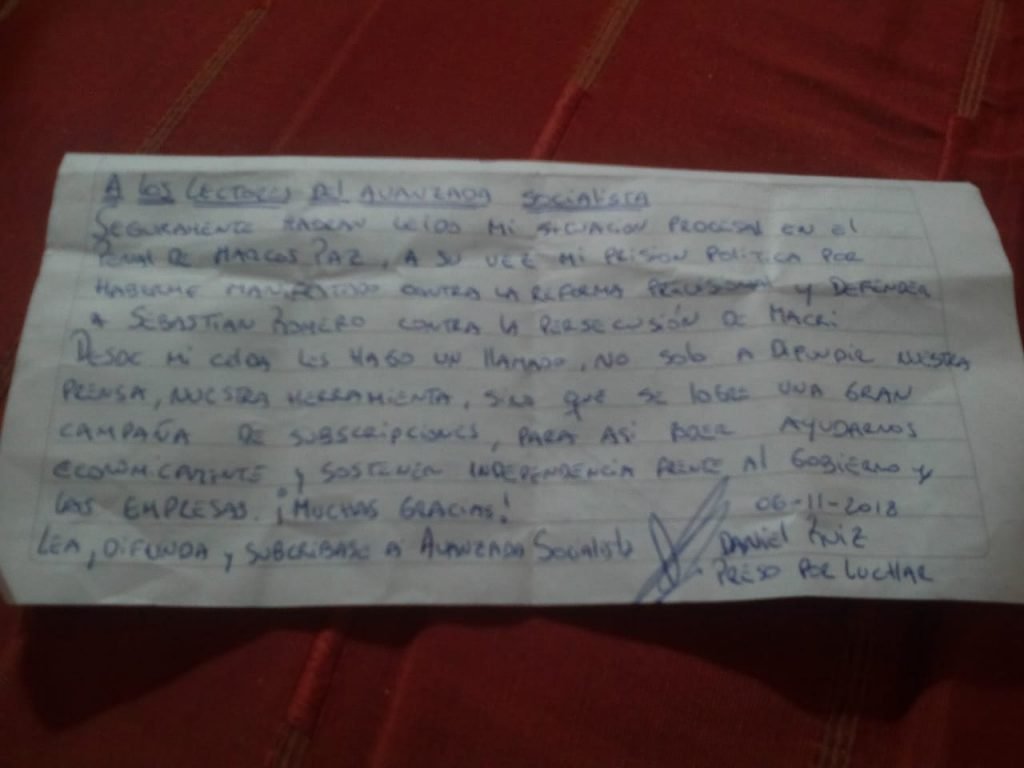 A LOS LECTORES DEL AVANZADA SOCIALISTA
SEGURAMENTE HABRAN LEIDO MI SITUACION PROCESAL EN EL
PENAL DE MARCOS PAZ, A SU VEZ MI PRISION POLITICA POR
HABERME MANIFESTADO CONTRA LA REFORMA PREVISIONAL Y DEFENDER
A SEBASTIAN ROMERO CONTRA LA PERSECUSIÓN DE MACRI
DESDE MI CELDA LES HAGO UN LLAMADO, NO SOLO A DIFUNDIR NUESTRA
PRENSA, NUESTRA HERRAMIENTA, SINO QUE SE LOGRE UNA GRAN
CAMPAÑA DE SUBSCRIPCIONES, PARA ASI PODER AYUDARNOS
ECONOMICAMENTE Y SOSTENER INDEPENDENCIA FRENTE AL GOBIERNO Y
LAS EMPRESAS. ¡MUCHAS GRACIAS! 06-11-2018
LEA, DIFUNDA Y SUBCRIBASE A AVANZADA SOCIALISTA DANIEL RUIZ
PRESO POR LUCHAR